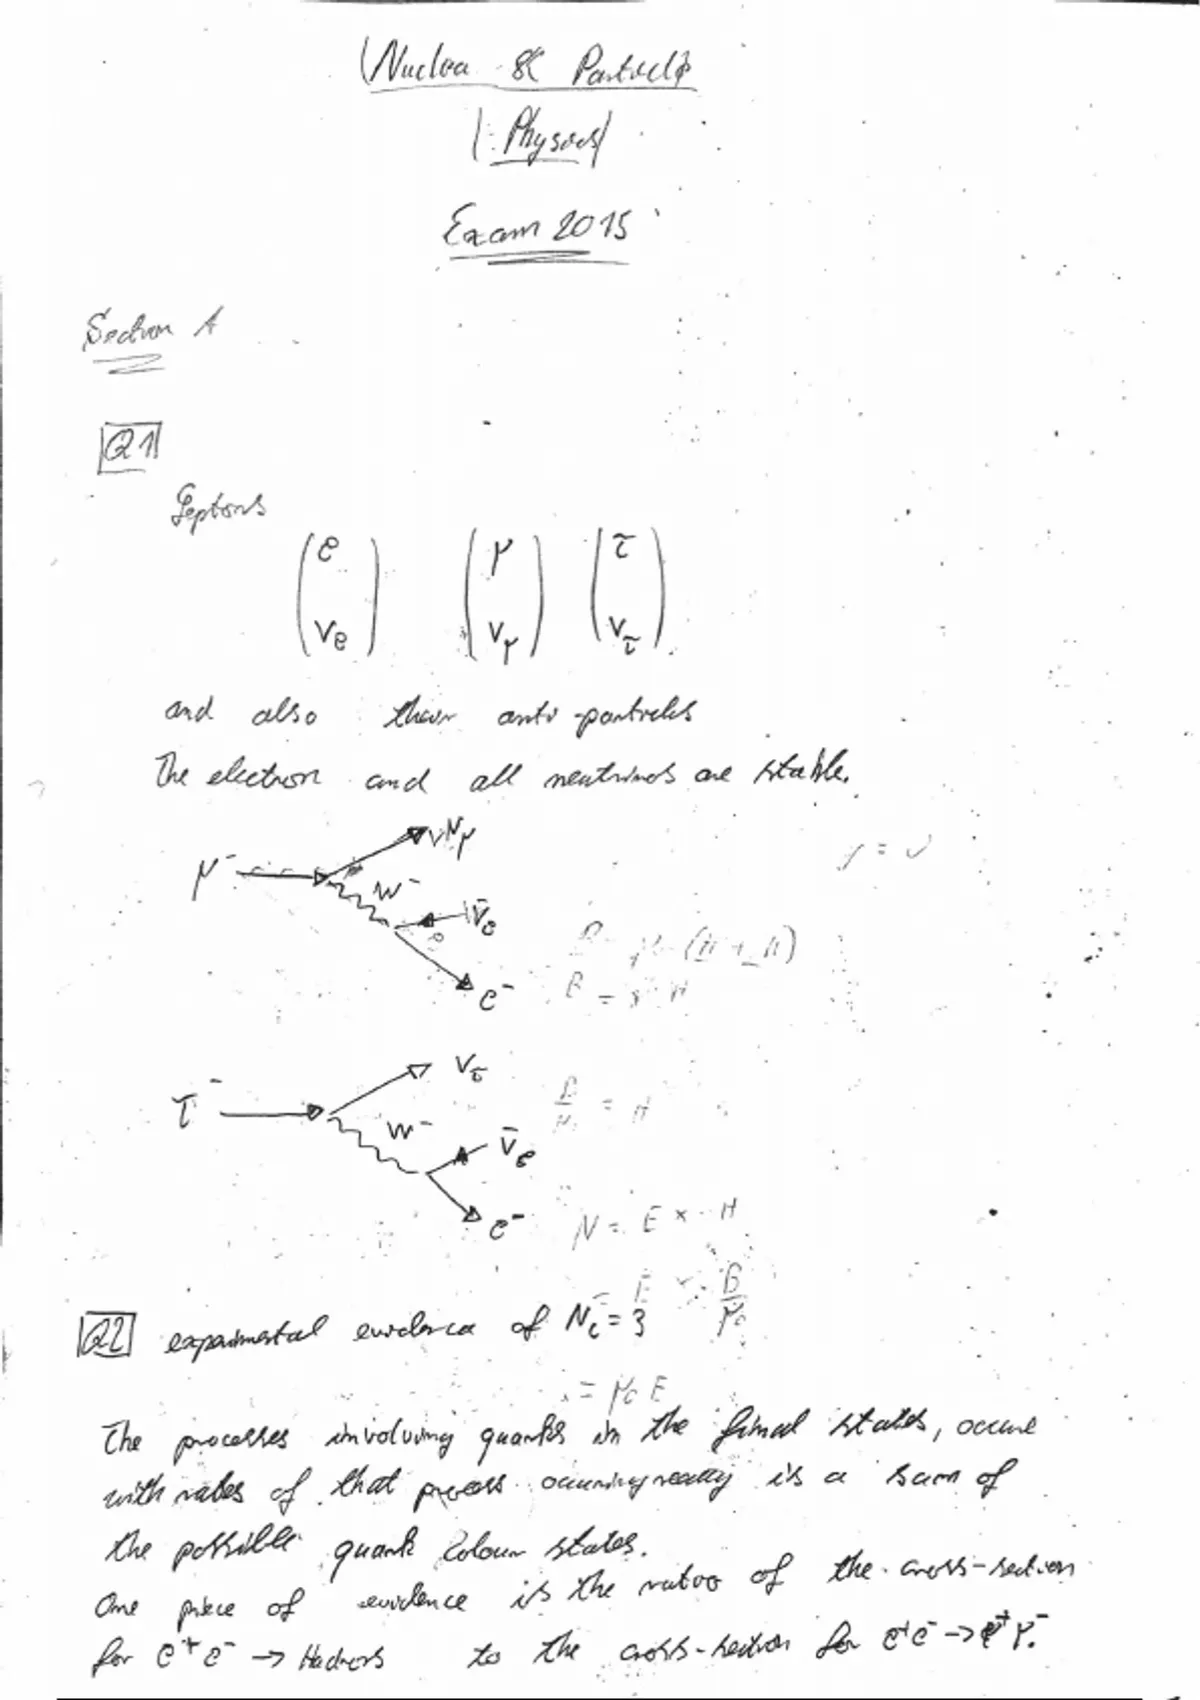 Nuclea & Particle
Physics
Exam 2015
Section A
Q1
Leptons
e μ τ
νe νμ ντ
and also their anti-particles
The electron and all neutrinos are stable.
μ- νμ
W-
ν̄e
e-
τ- ντ
W-
ν̄e
e-
N = E × H
Q2 experimental evidence of Nc = 3
= μ0 E
The processes involving quarks in the final states, occure
with rates of that process occurring really is a sum of
the possible quark colour states.
One piece of evidence is the ratio of the cross-section
for e+ e- → Hadrons to the cross-section for e+e- → μ+ μ-